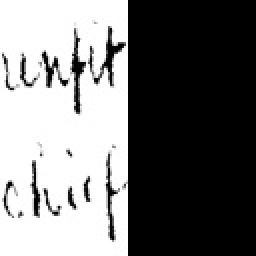 unfit
chief